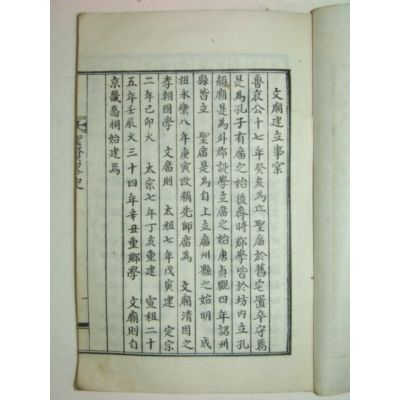 文廟建立事案
魯哀公十七年癸亥為立 聖廟於舊宅置卒守焉
是為孔子有廟之始後齊時郡學皆於坊內立孔
顔廟是為外郡設學立廟之始唐貞觀四年詔州
縣皆立 聖廟是為自上立廟州縣之始明 成
祖永樂八年庚寅改稱先師廟為 文廟清因之
李朝國學 文廟則 太祖七年戊寅建 定宗
二年己卯火 太宗七年丁亥重建 宣祖二十
五年壬辰火三十四年辛丑重鄉學 文廟則自
京畿喬桐始建焉